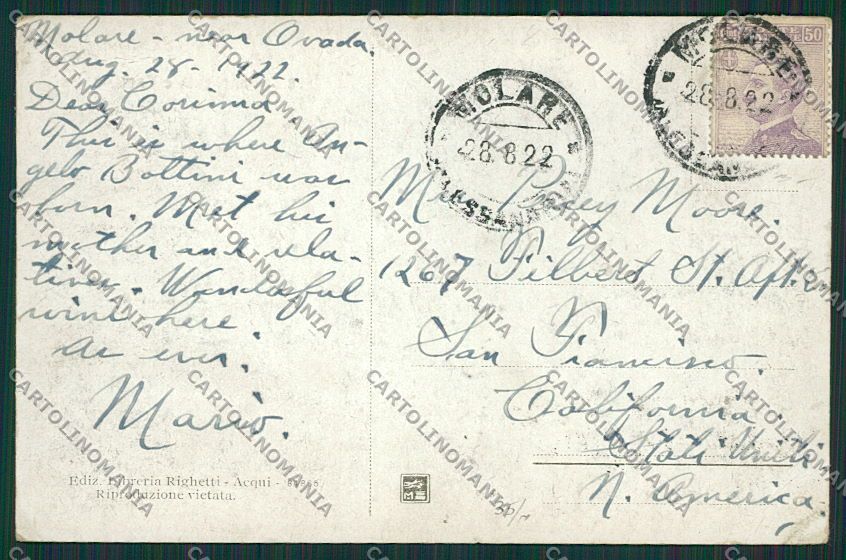 Molare - near Ovada.
Aug. 28 - 1922.
Dear Corinna
This is where An-
gelo Bottini was
born. Met his
mother and rela-
tives. Wonderful
wine here.
As ever:
Mario.
Ediz. Libreria Righetti - Acqui -
Riproduzione vietata.
MOLARE
28.8.22
50
28.8.22
Percy Moore.
1267 Filbert St. Apt.
San Francisco.
California
Stati Uniti
N. America
CARTOLINOMANIA